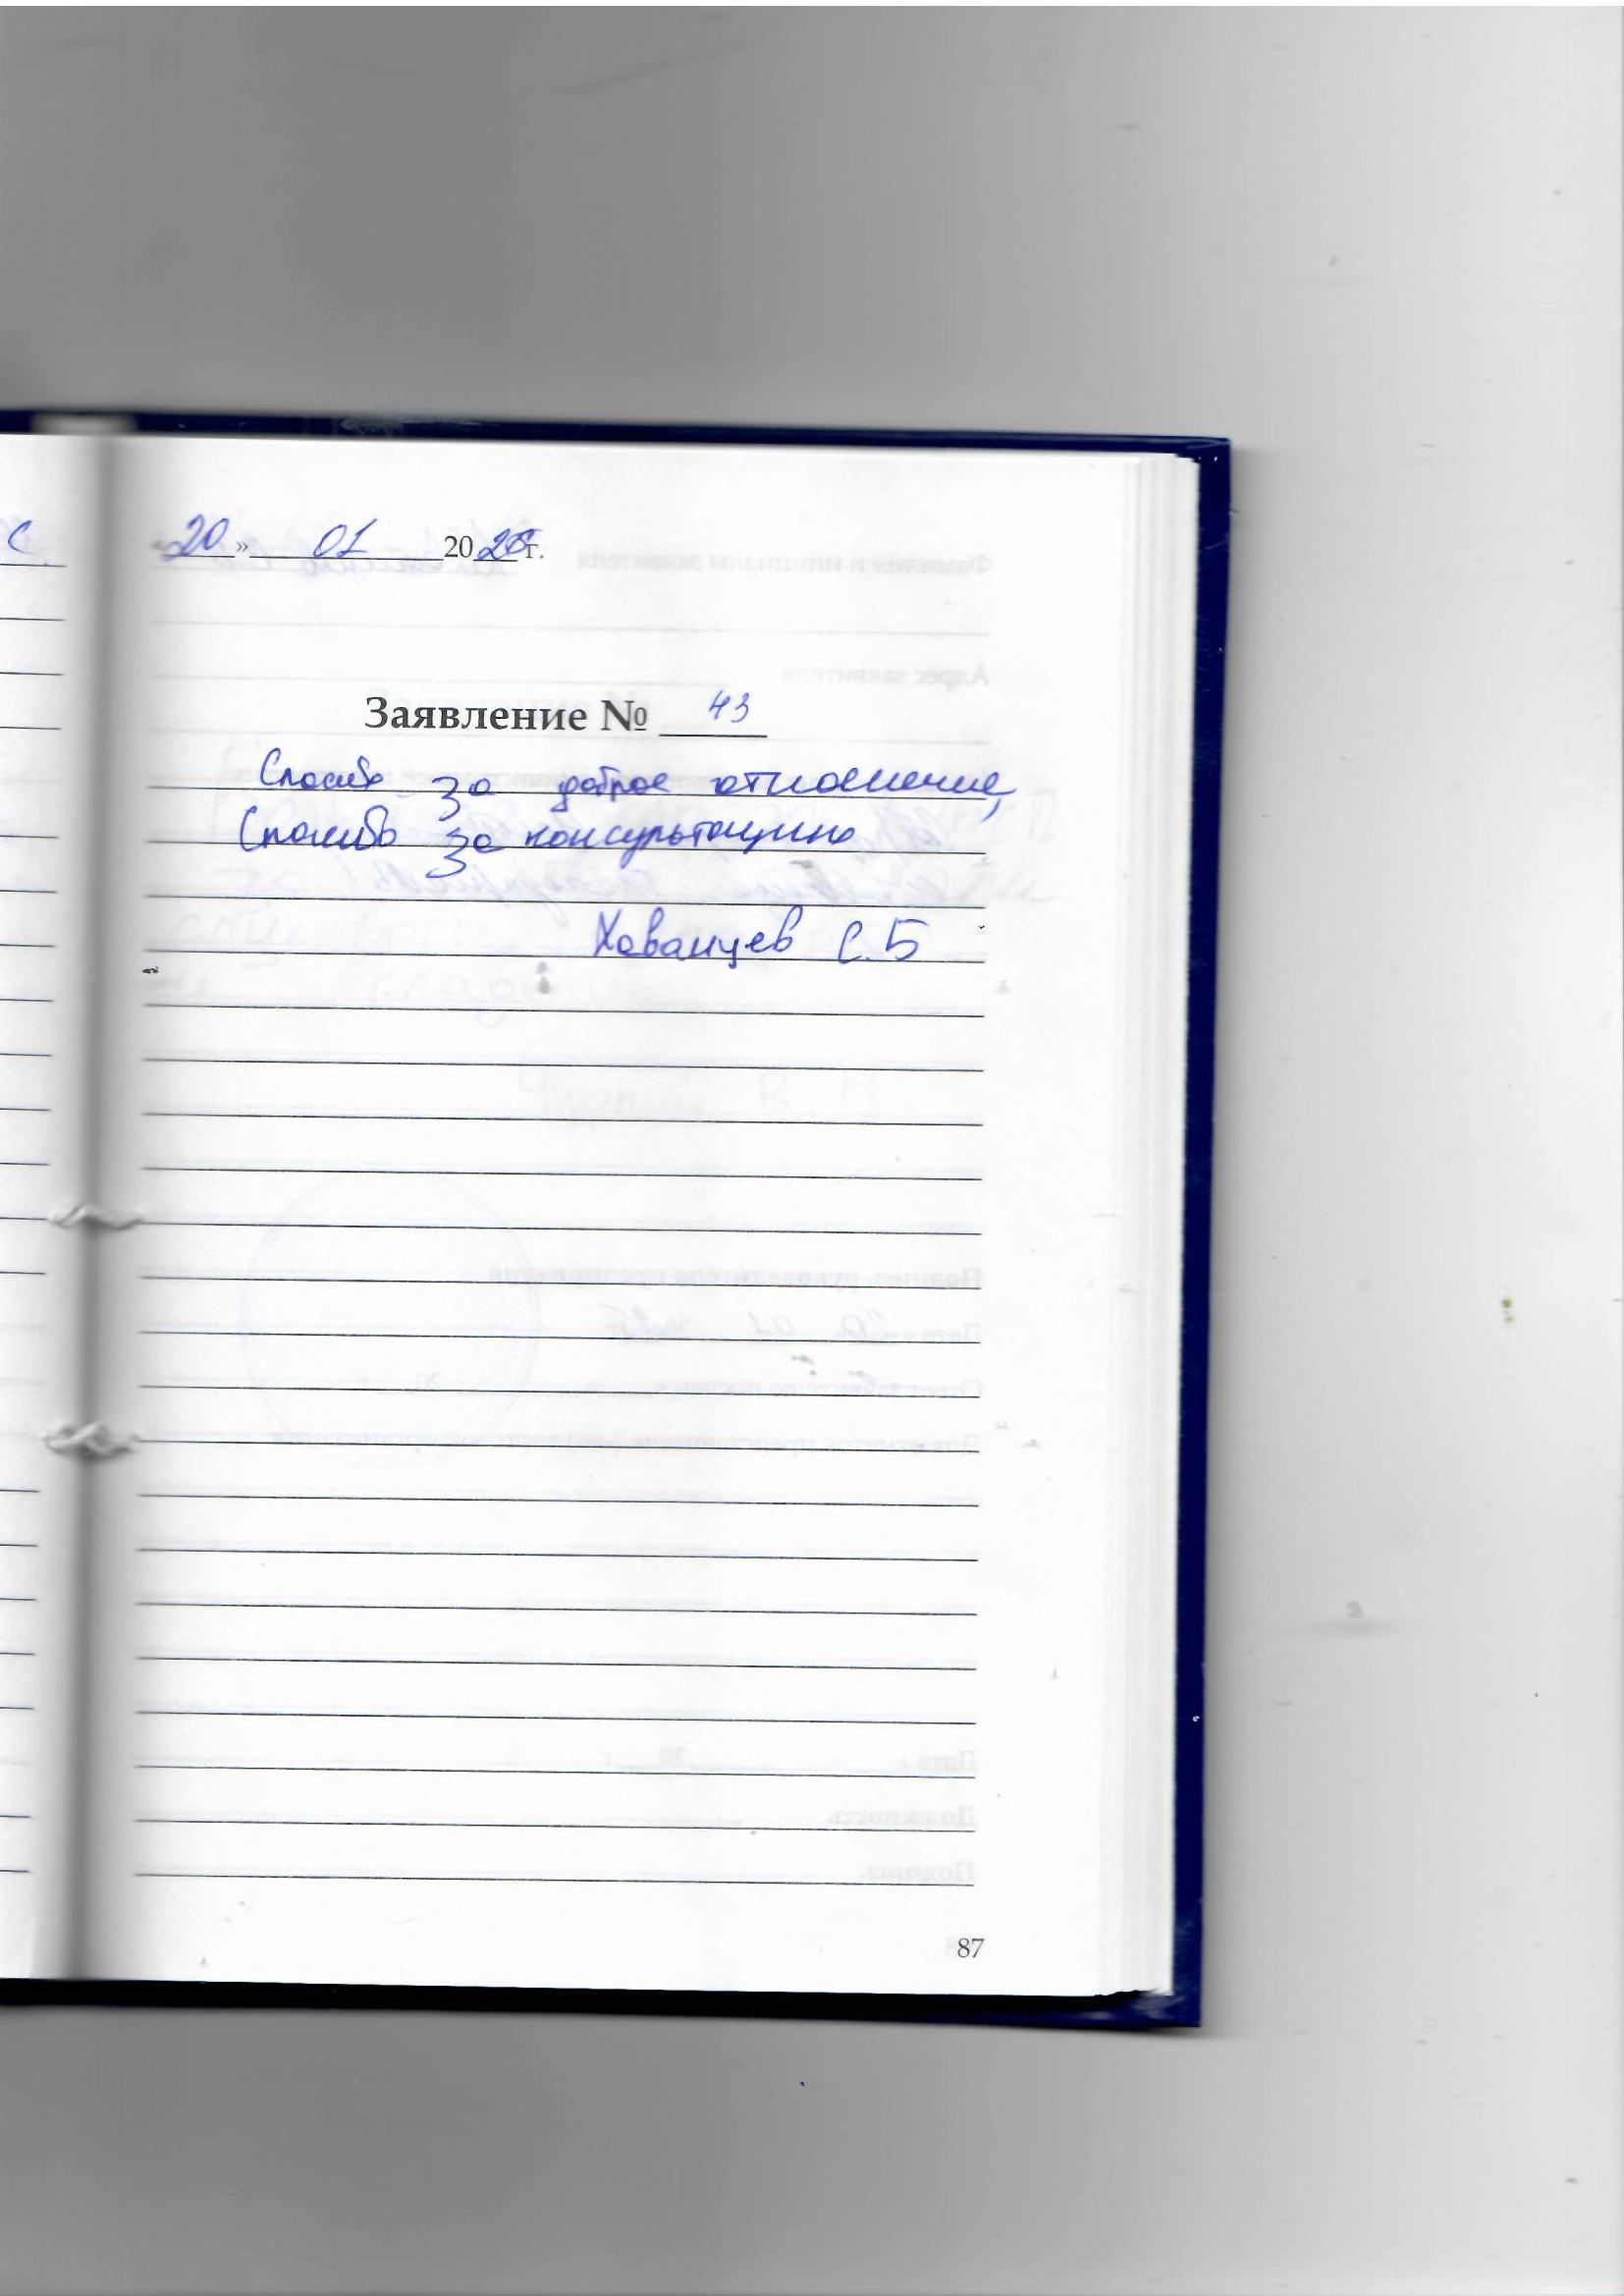 С
«20» 01 2025г.
Заявление № 43
Спасибо за доброе отношение,
Спасибо за консультацию
Хованцев С.Б
87